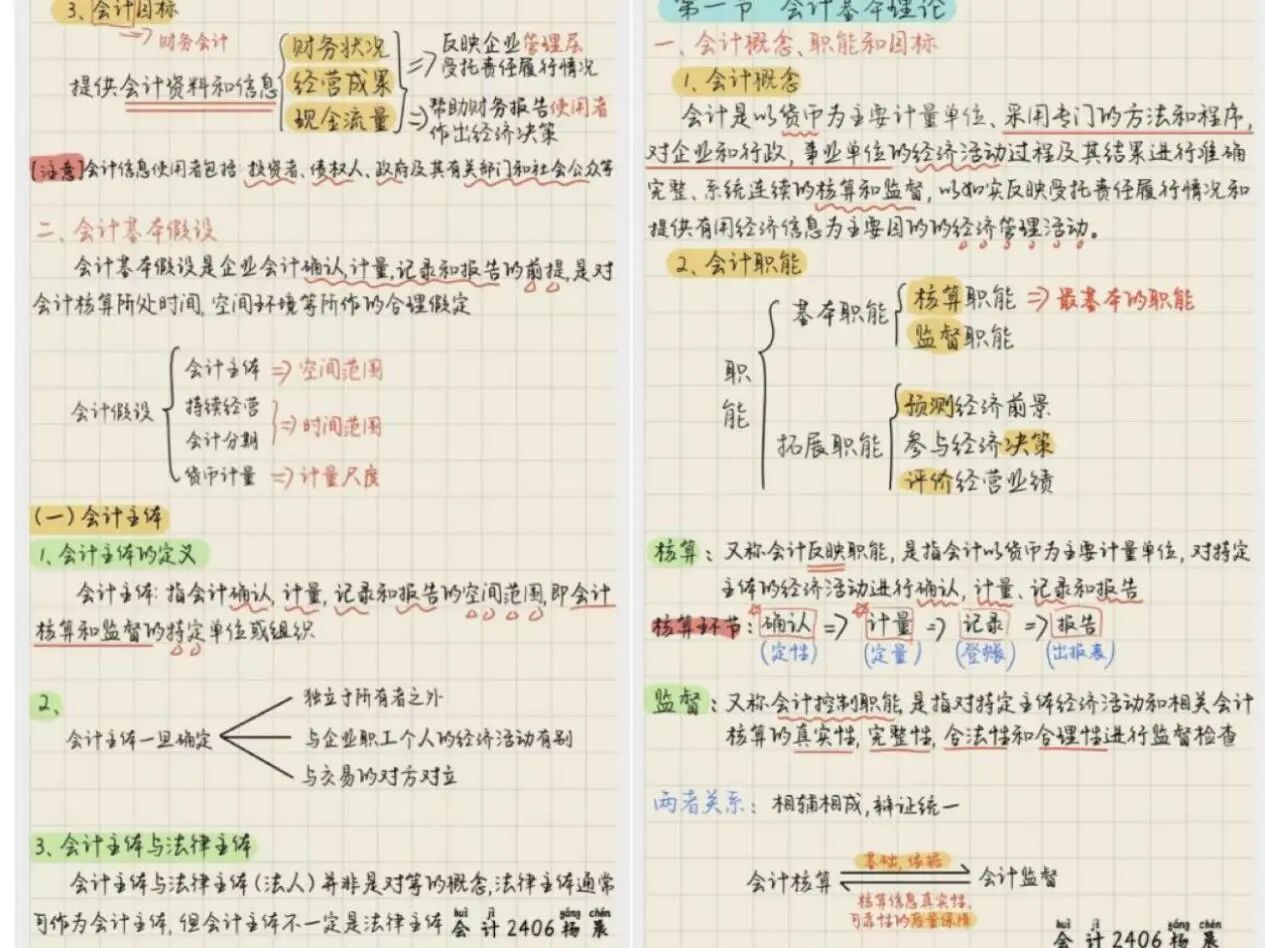 3、会计目标
=> 财务会计
提供会计资料和信息
财务状况
经营成果
现金流量
=> 反映企业管理层
受托责任履行情况
=> 帮助财务报告使用者
作出经济决策
[注意]会计信息使用者包括:投资者、债权人、政府及其有关部门和社会公众等
二、会计基本假设
会计基本假设是企业会计确认,计量,记录和报告的前提,是对
会计核算所处时间,空间环境等所作的合理假定
会计假设
会计主体 => 空间范围
持续经营
会计分期
=> 时间范围
货币计量 => 计量尺度
(一)会计主体
1、会计主体的定义
会计主体:指会计确认,计量,记录和报告的空间范围,即会计
核算和监督的特定单位或组织
2、
会计主体一旦确定
独立于所有者之外
与企业职工个人的经济活动有别
与交易的对方对立
3、会计主体与法律主体
会计主体与法律主体(法人)并非是对等的概念,法律主体通常
可作为会计主体,但会计主体不一定是法律主体
huì jì gāng chén
会计2406杨晨
第一节 会计基本理论
一、会计概念、职能和目标
1、会计概念
会计是以货币为主要计量单位、采用专门的方法和程序,
对企业和行政,事业单位的经济活动过程及其结果进行准确
完整、系统连续的核算和监督,以如实反映受托责任履行情况和
提供有用经济信息为主要目的的经济管理活动。
2、会计职能
职能
基本职能
核算职能 => 最基本的职能
监督职能
拓展职能
预测经济前景
参与经济决策
评价经营业绩
核算:又称会计反映职能,是指会计以货币为主要计量单位,对特定
主体的经济活动进行确认,计量、记录和报告
核算环节:确认 => 计量 => 记录 => 报告
(定性) (定量) (登账) (出报表)
监督:又称会计控制职能,是指对特定主体经济活动和相关会计
核算的真实性,完整性,合法性和合理性进行监督检查
两者关系:相辅相成,辩证统一
基础,依据
会计核算 会计监督
核算信息真实性、
可靠性的质量保障
huì jì gāng chén
会计2406杨晨